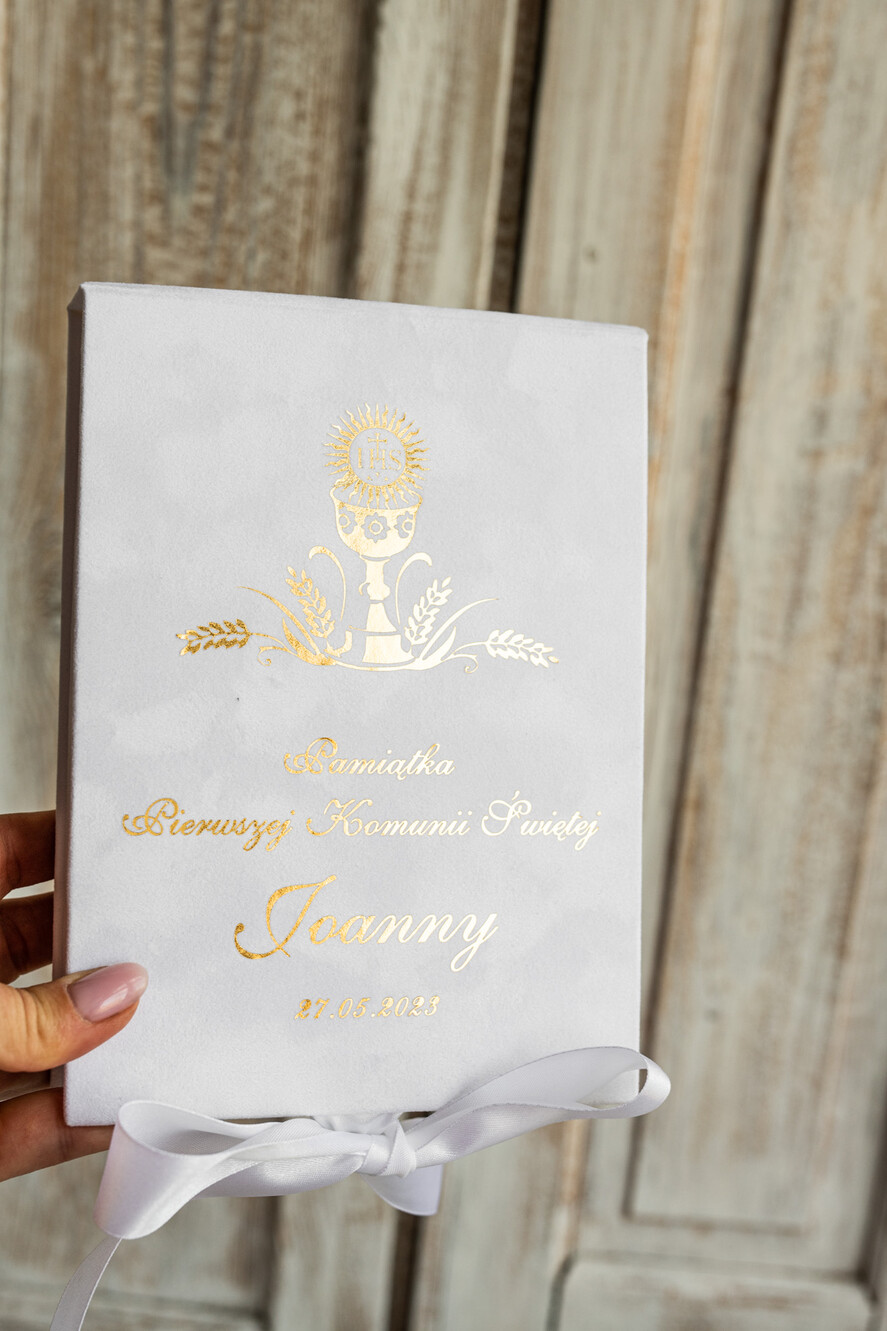 IHS
Pamiątka
Pierwszej Komunii Świętej
Joanny
27.05.2023